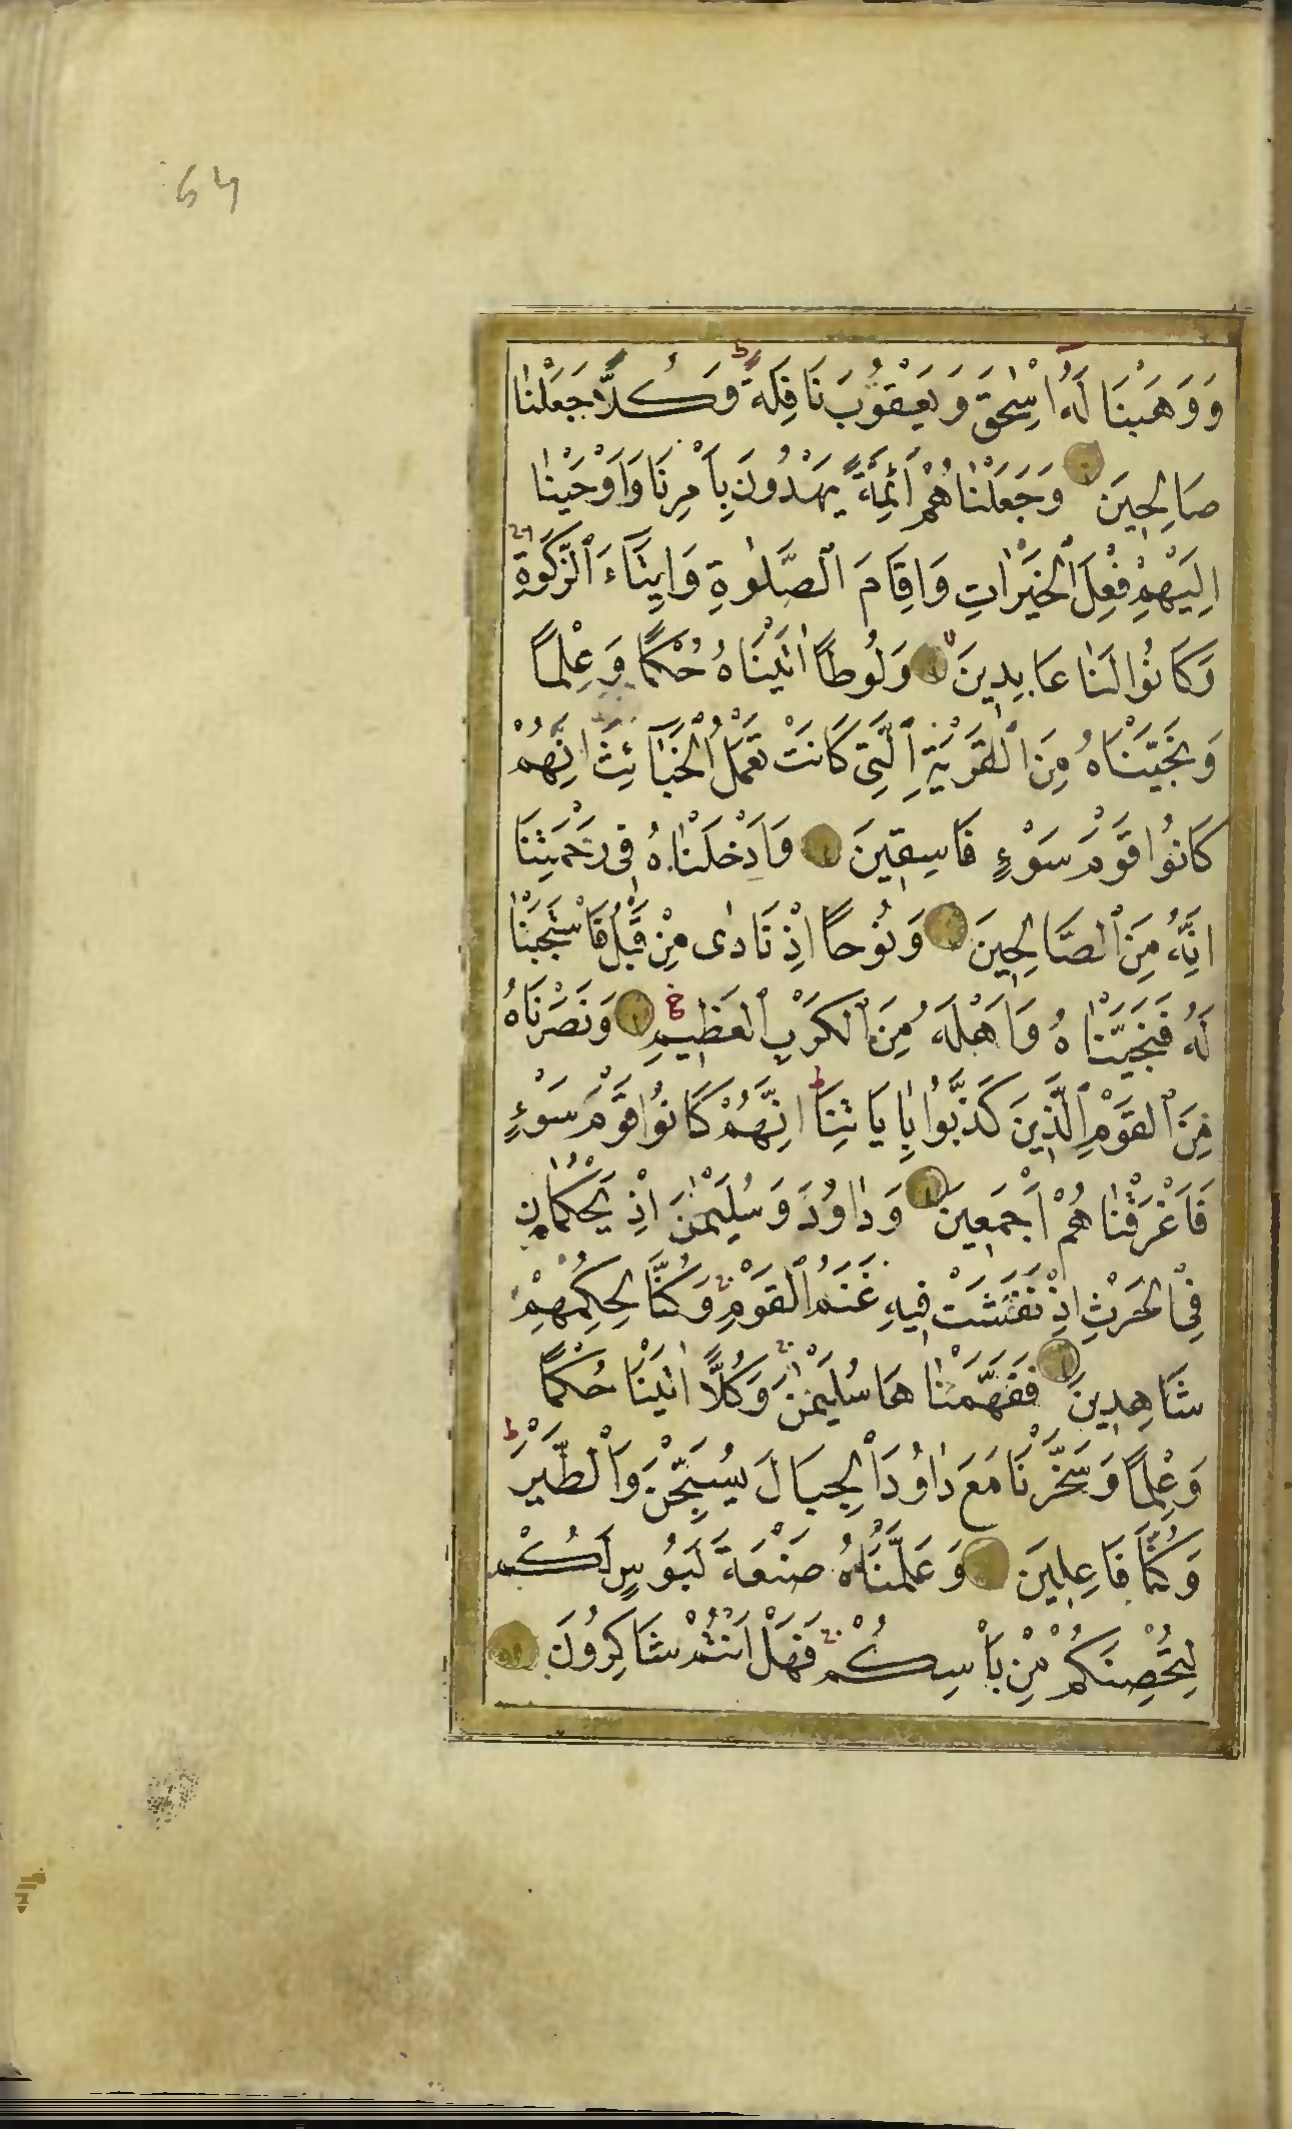 64
وَوَهَبْنَا لَهُ اِسْحٰقَ وَيَعْقُوْبَ نَافِلَةً وَكُلًّا جَعَلْنٰا
صَالِحٖينَ وَجَعَلْنٰاهُمْ اَئِمَّةً يَهْدُونَ بِاَمْرِنَا وَاَوْحَيْنٰا
اِلَيْهِمْ فِعْلَ ٱلْخَيْرٰاتِ وَاِقَامَ ٱلصَّلٰوةِ وَاِيتَٓاءَ ٱلزَّكٰوةِ
وَكَانُوْا لَنٰا عَابِدٖينَ وَلُوْطًا اٰتَيْنَاهُ حُكْمًا وَعِلْمًا
وَنَجَّيْنَاهُ مِنَ ٱلْقَرْيَةِ ٱلَّتِى كَانَتْ تَعْمَلُ ٱلْخَبَٓائِثَ اِنَّهُمْ
كَانُوْا قَوْمَ سَوْءٍ فَاسِقٖينَ وَاَدْخَلْنٰاهُ فٖى رَحْمَتِنَا
اِنَّهُ مِنَ ٱلصَّالِحٖينَ وَنُوْحًا اِذْ نَادٰى مِنْ قَبْلُ فَاسْتَجَبْنٰا
لَهُ فَنَجَّيْنٰاهُ وَاَهْلَهُ مِنَ ٱلْكَرْبِ ٱلْعَظٖيمِ وَنَصَرْنَاهُ
مِنَ ٱلْقَوْمِ ٱلَّذٖينَ كَذَّبُوْا بِاٰيَاتِنَا اِنَّهُمْ كَانُوْا قَوْمَ سَوْءٍ
فَاَغْرَقْنٰاهُمْ اَجْمَعٖينَ وَدٰاوُدَ وَسُلَيْمٰنَ اِذْ يَحْكُمَانِ
فِى ٱلْحَرْثِ اِذْ نَفَشَتْ فٖيهِ غَنَمُ ٱلْقَوْمِ وَكُنَّا لِحُكْمِهِمْ
شَاهِدٖينَ فَفَهَّمْنٰاهَا سُلَيْمٰنَ وَكُلًّا اٰتَيْنَا حُكْمًا
وَعِلْمًا وَسَخَّرْنَا مَعَ دٰاوُدَ ٱلْجِبَالَ يُسَبِّحْنَ وَٱلطَّيْرَ
وَكُنَّا فَاعِلٖينَ وَعَلَّمْنَاهُ صَنْعَةَ لَبُوْسٍ لَكُمْ
لِتُحْصِنَكُمْ مِنْ بَأْسِكُمْ فَهَلْ اَنْتُمْ شَاكِرُونَ